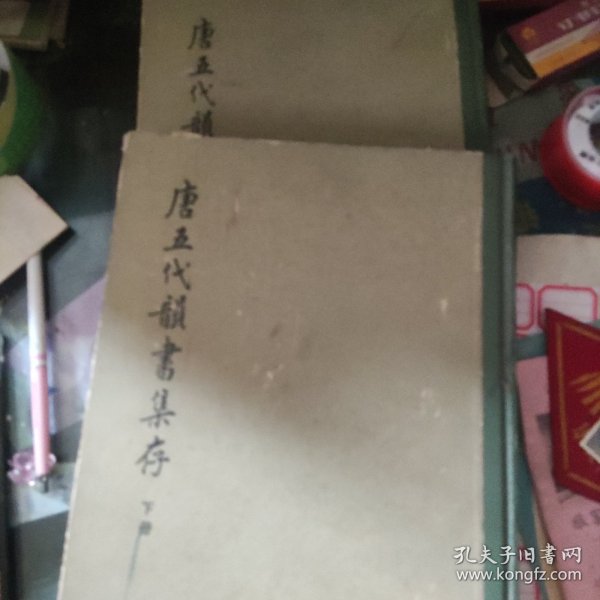 唐五代韻
唐五代韻書集存
下冊
孔夫子旧书网
www.kongfz.com